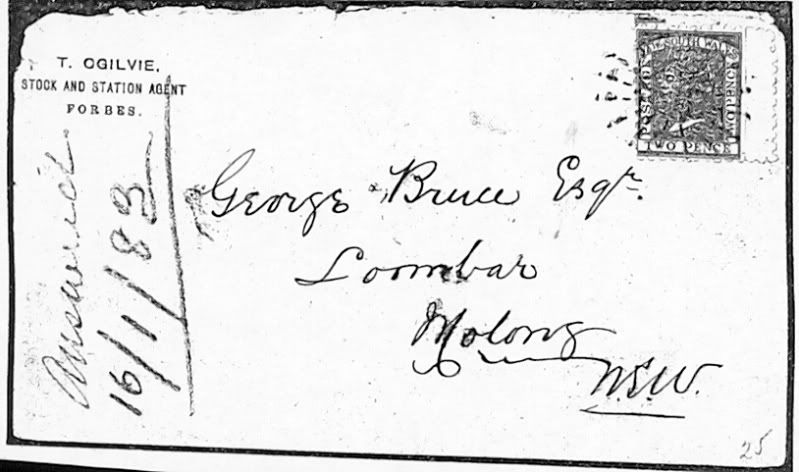 T. OGILVIE,
STOCK AND STATION AGENT
FORBES.
Answered
16/1/83
NEW SOUTH WALES
POSTAGE
TWO PENCE
George Bruce Esqr.
Loombar
Molong
N.S.W.
25